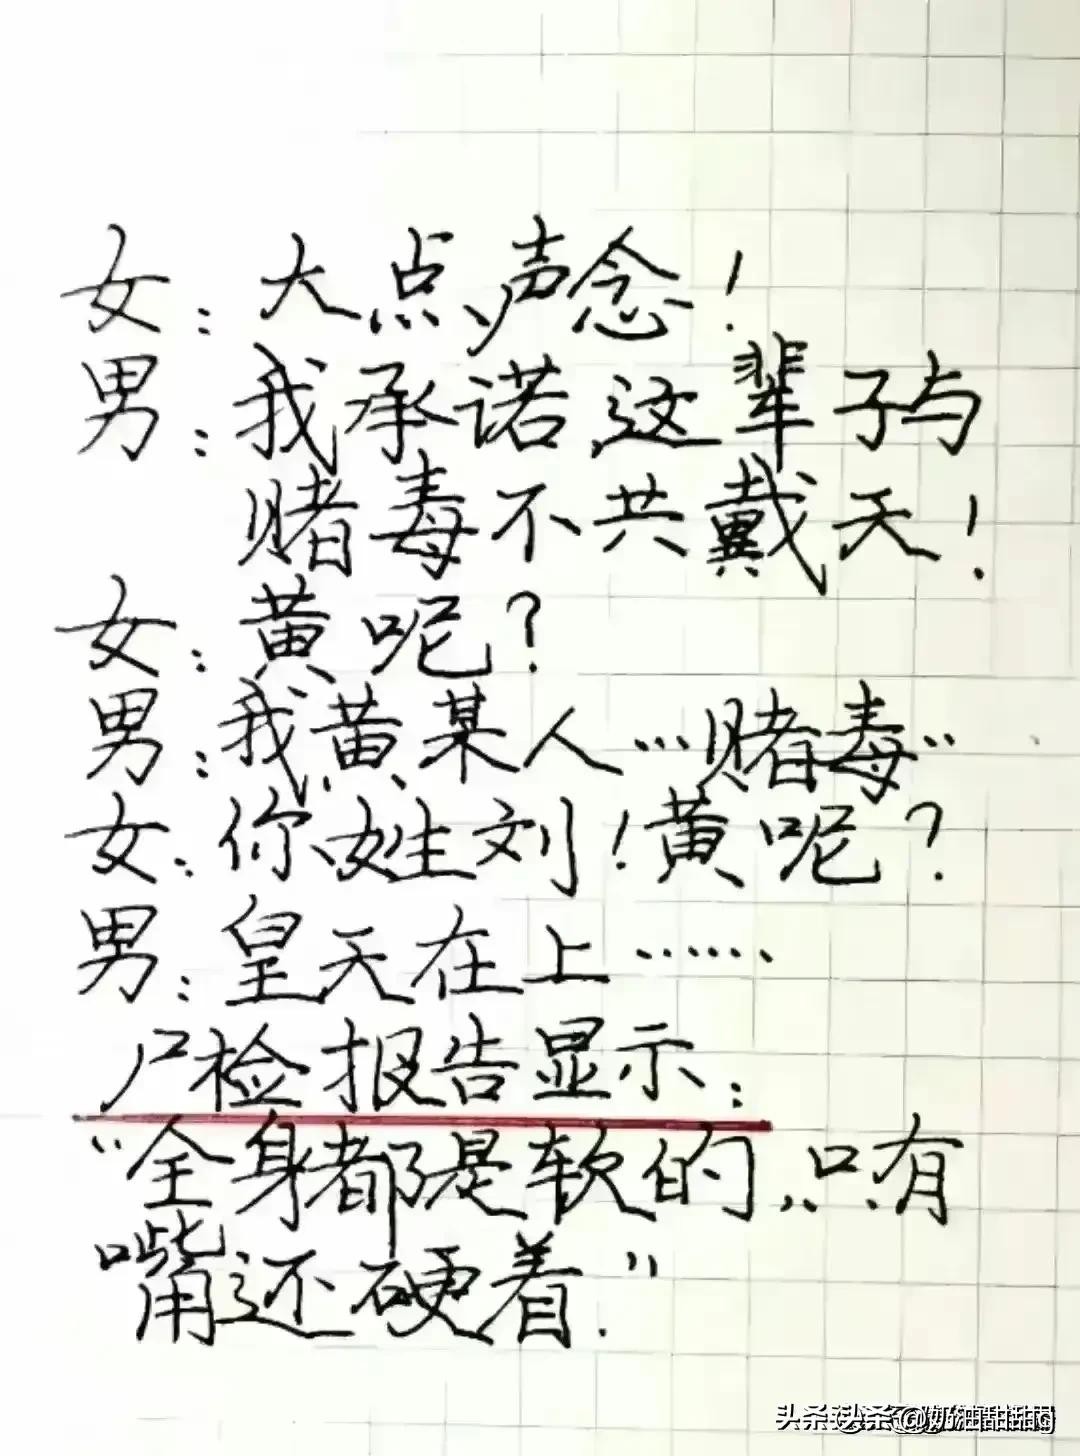 女：大点声念！
男：我承诺这辈子与
赌毒不共戴天！
女：黄呢？
男：我黄某人…赌毒..
女：你姓刘！黄呢？
男：皇天在上……
尸检报告显示：
“全身都是软的，只有
嘴还硬着.”
头条 @奶油甜甜圈